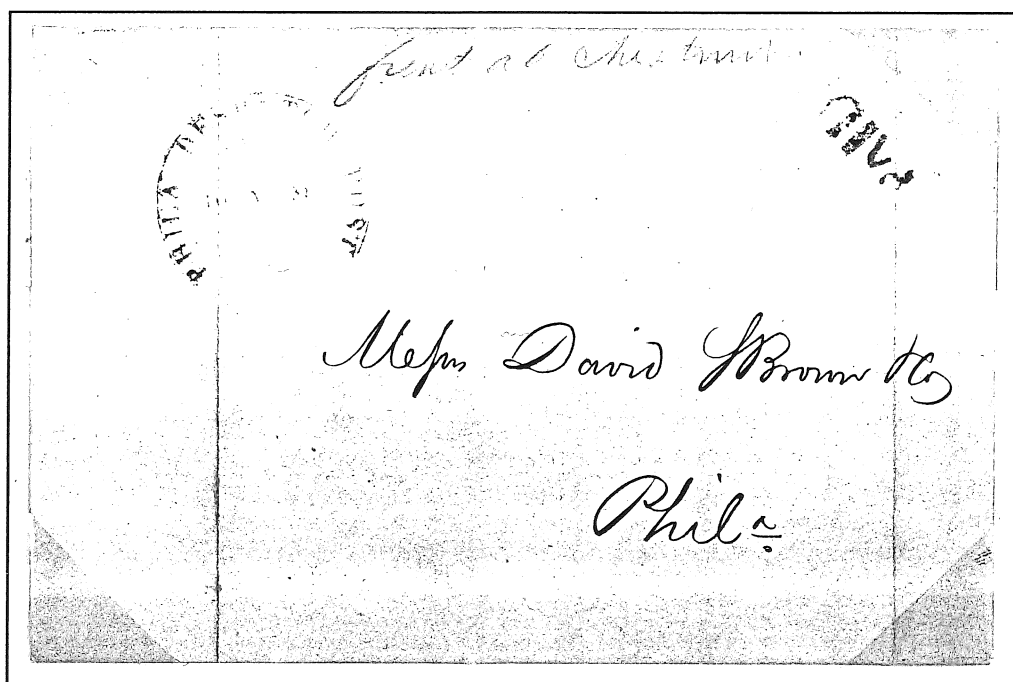 front ab Chestnut
PHILA DESPATCH POST
Messrs David S Brown & Co
Phila